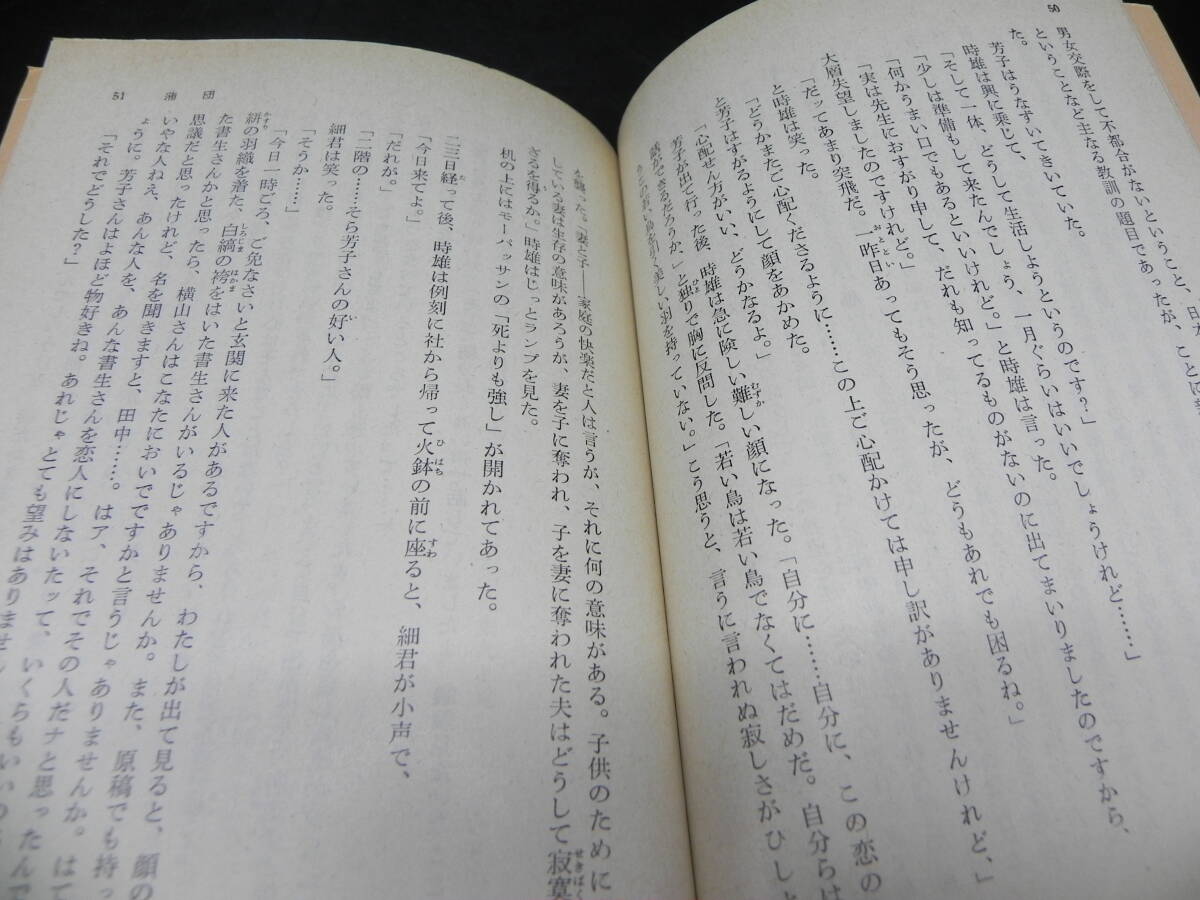 50
男女交際をして不都合がないということ、
ということなど主なる教訓の題目であったが、ことに
た。
芳子はうなずいてきいていた。
時雄は興に乗じて、
「そして一体、どうして生活しようというのです？」
「少しは準備もして来たんでしょう、一月ぐらいはいいでしょうけれど……」
「何かうまい口でもあるといいけれど。」と時雄は言った。
「実は先生におすがり申して、だれも知ってるものがないのに出てまいりましたのですから、
大層失望しましたのですけれど。」
「だッてあまり突飛だ。一昨日あってもそう思ったが、どうもあれでも困るね。」
と時雄は笑った。
「どうかまたご心配くださるように……この上ご心配かけては申し訳がありませんけれど、」
と芳子はすがるようにして顔をあかめた。
「心配せん方がいい、どうかなるよ。」
芳子が出て行った後、時雄は急に険しい難しい顔になった。「自分に……自分に、この恋の
話ができるだろうか。」と独りで胸に反問した。「若い鳥は若い鳥でなくてはだめだ。自分らは
もうこの若い鳥を引く美しい羽を持っていない。」こう思うと、言うに言われぬ寂しさがひしと
を襲った。「妻と子――家庭の快楽だと人は言うが、それに何の意味がある。子供のために
している妻は生存の意味があろうが、妻を子に奪われ、子を妻に奪われた夫はどうして寂寞
ざるを得るか。」時雄はじっとランプを見た。
机の上にはモーパッサンの「死よりも強し」が開かれてあった。
二三日経って後、時雄は例刻に社から帰って火鉢の前に座ると、細君が小声で、
「今日来てよ。」
「だれが。」
「二階の……そら芳子さんの好い人。」
細君は笑った。
「そうか……」
「今日一時ごろ、ご免なさいと玄関に来た人があるですから、わたしが出て見ると、顔の
絣の羽織を着た、白縞の袴をはいた書生さんがいるじゃありませんか。また、原稿でも持っ
た書生さんかと思ったら、横山さんはこなたにおいでですかと言うじゃありませんか。はて
思議だと思ったけれど、名を聞きますと、田中……。はア、それでその人だナと思ったんで
いやな人ねえ、あんな人を、あんな書生さんを恋人にしないたッて、いくらもいいの
ように。芳子さんはよほど物好きね。あれじゃとても望みはありません
「それでどうした？」
51　蒲団